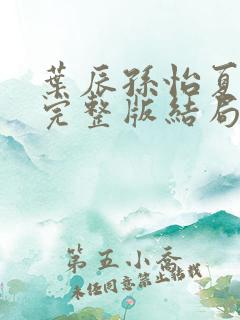 葉辰孫怡夏
完整版結局
第五小喬
未经同意禁止转载